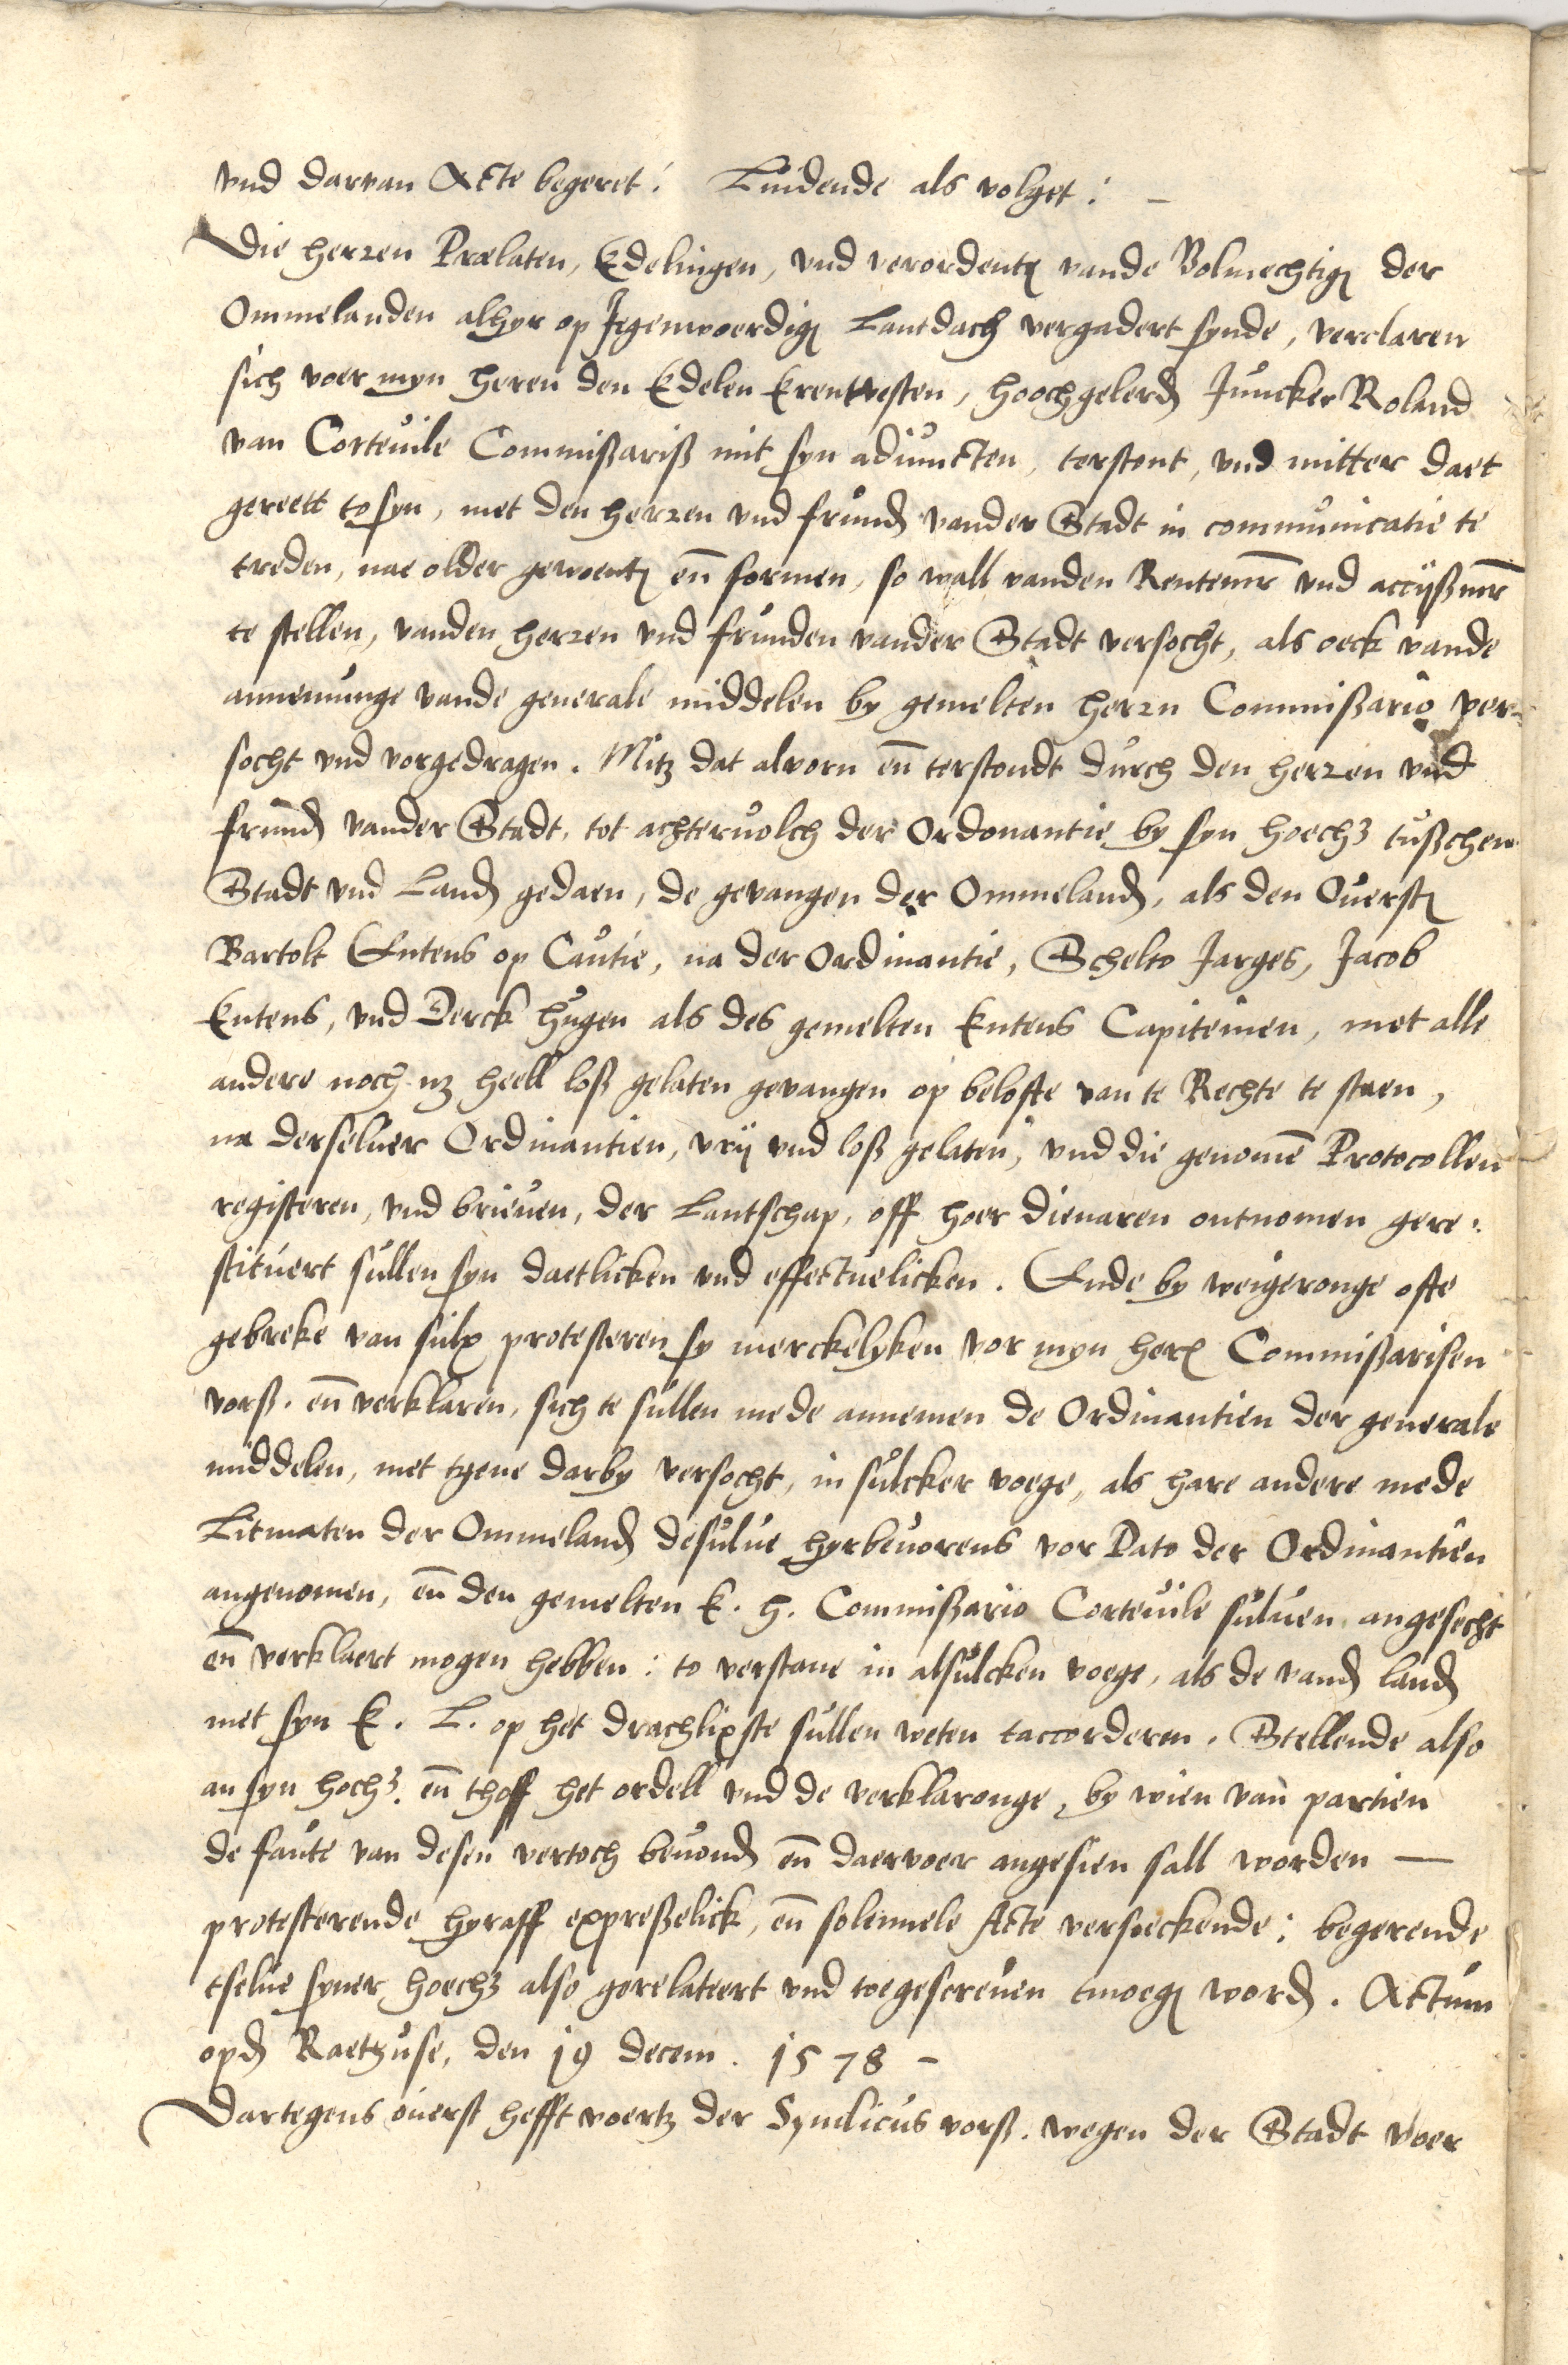 vnd darvan Acte begeret: Luidende als volget: —
Die herren Prælaten, Edelingen, vnd verordent vande Volmechtig der
Ommelanden alhyr op Jegenwoerdig Lantdach vergadert synde, verclaren
sich voer myn heren den Edelen Erentvesten, hoochgelerd Juncker Roland
van Corteuile Commißariß mit syn adiuncten, terstont, vnd mitter daet
gereett to syn, met den herren vnd frund vander Stadt in communicatie te
treden, nae older gewoent en formen, so wall vanden Rentemr vnd accijßmr
te stellen, vanden herren vnd frunden vander Stadt versocht, als oeck vande
annemunge vande generale middelen by gemelten herrn Commißario ver-
socht vnd vorgedragen. Mitz dat alvorn en terstondt durch den herren vnd
frund vander Stadt, tot achteruolch der Ordonantie by syn hoechz tußchen
Stadt vnd Land gedaen, de gevangen der Ommeland, als den Ouerst
Bartolt Entens op Cautie, na der Ordinantie, Schelto Jarges, Jacob
Entens, vnd Derck hugen als des gemelten Entens Capiteinen, met alle
andere noch nz heell loß gelaten gevangen op belofte van te Rechte te staen,
na derseluer Ordinantien, vrij vnd loß gelaten, vnd die genome Protocollen
registeren, vnd brieuen, der Lantschap, off hoer dienaren ontnomen gere:
stituert sullen syn daetlicken vnd effectuelicken. Ende by weigeronge ofte
gebreke van sulx protesteren sy merckelyken vor myn her Commißarisen
vorß. en verklaren, sich te sullen mede annemen de Ordinantien der generale
middelen, met tgene darby versocht, in sulcker voege, als hare andere mede
Litmaten der Ommeland desulue hyrbeuorens vor Dato der Ordinantien
angenomen, en den gemelten E. h. Commißario Corteuile suluen angesecht
en verklaert mogen hebben: to verstane in alsulcken voege, als de vand land
met syn E. L. op het drachlixste sullen weten taccorderen. Stellende also
an syn hochz. en thoff het ordell vnd de verklaronge, by wien van partien
de faute van desen vertoch beuond en daervoer angesien sall worden —
protesterende hyraff expreßelick, en solemnele Acte versieckende: begerende
tselue syner hoechz also gerelateert vnd toegescreuen tmoeg word. Actum
opd Raethuse, den 19 decem. 1578 –
Dartegens ouerst hefft voertz der Syndicus vorß. wegen der Stadt voer